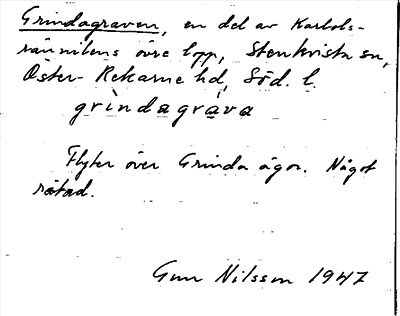 Grindagraven, en del av Karlols-
rännilens övre lopp, Stenkvista sn,
Öster-Rekarne hd, Söd. l.
grindagrava
Flyter över Grinda ägor. Något
rätad.
Gun Nilsson 1947